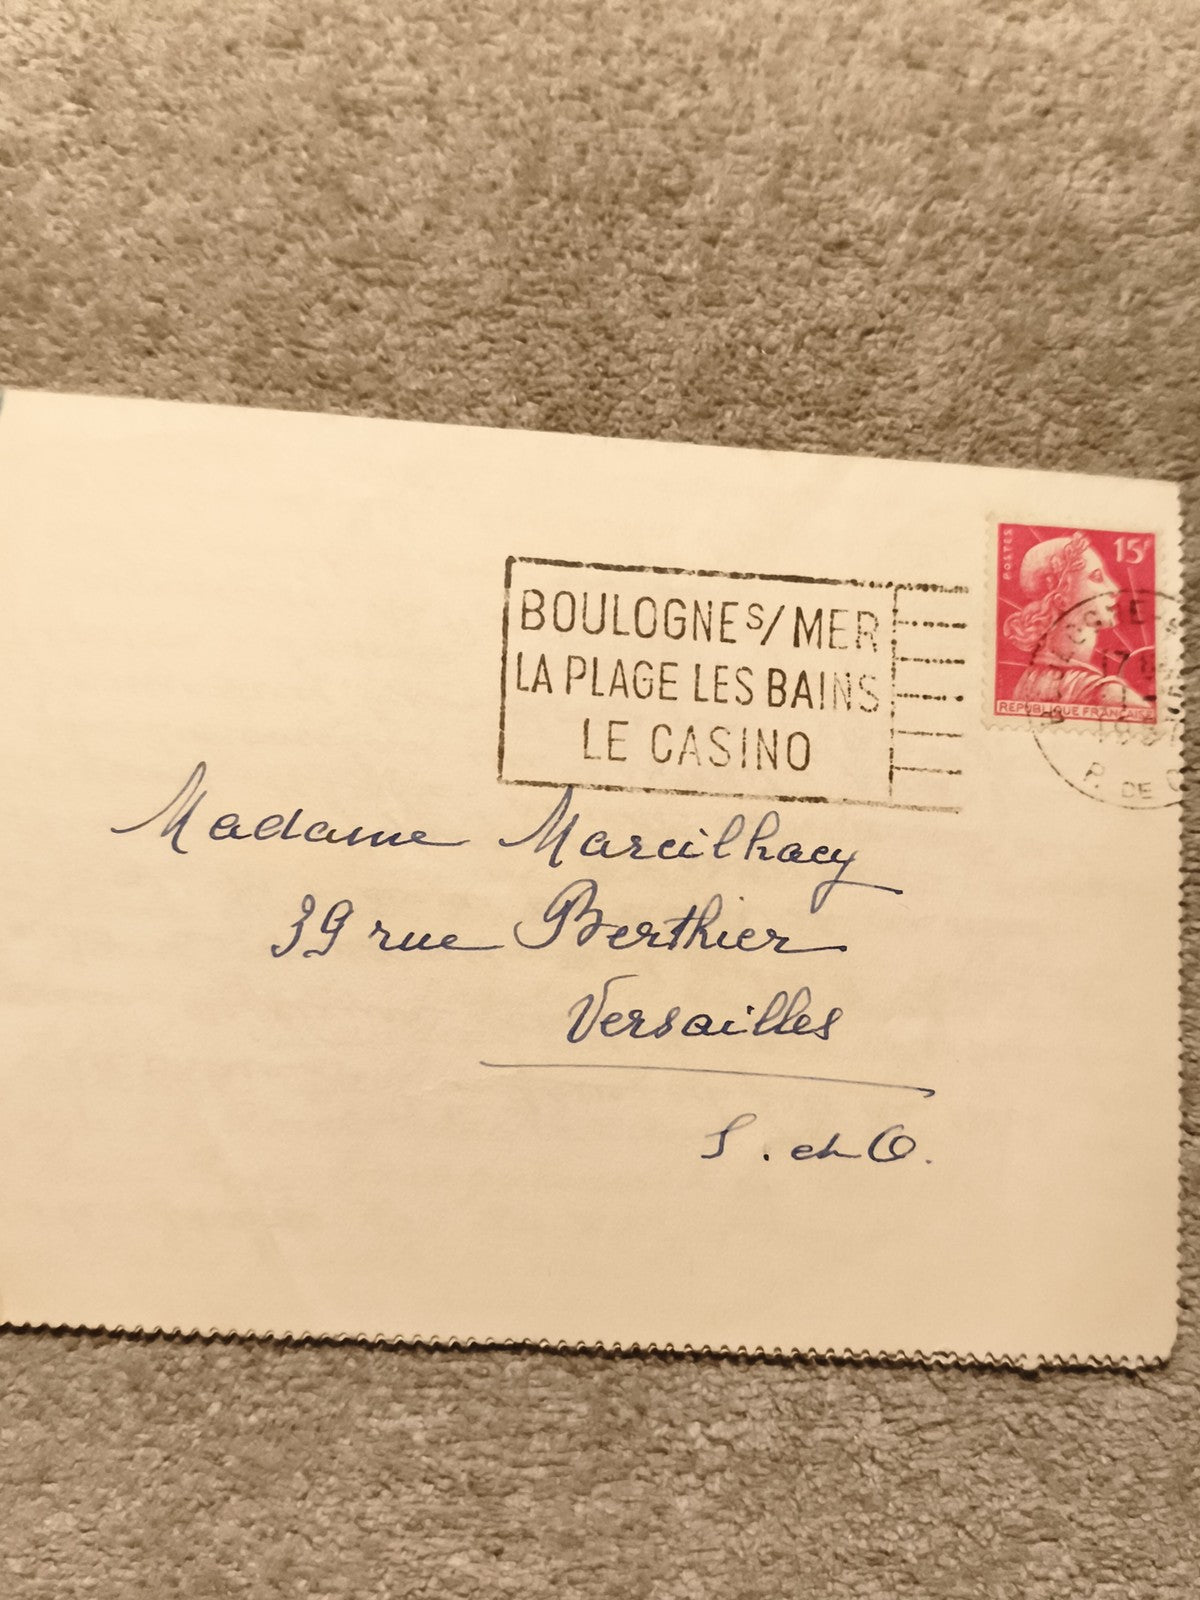 POSTES
15F
REPUBLIQUE FRANÇAISE
BOULOGNE S/MER
LA PLAGE LES BAINS
LE CASINO
17 H
1957
P. DE C
Madame Marcilhacy
39 rue Berthier
Versailles
S. et O.